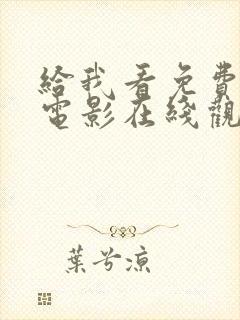 給我看免費
電影在綫觀
葉兮涼